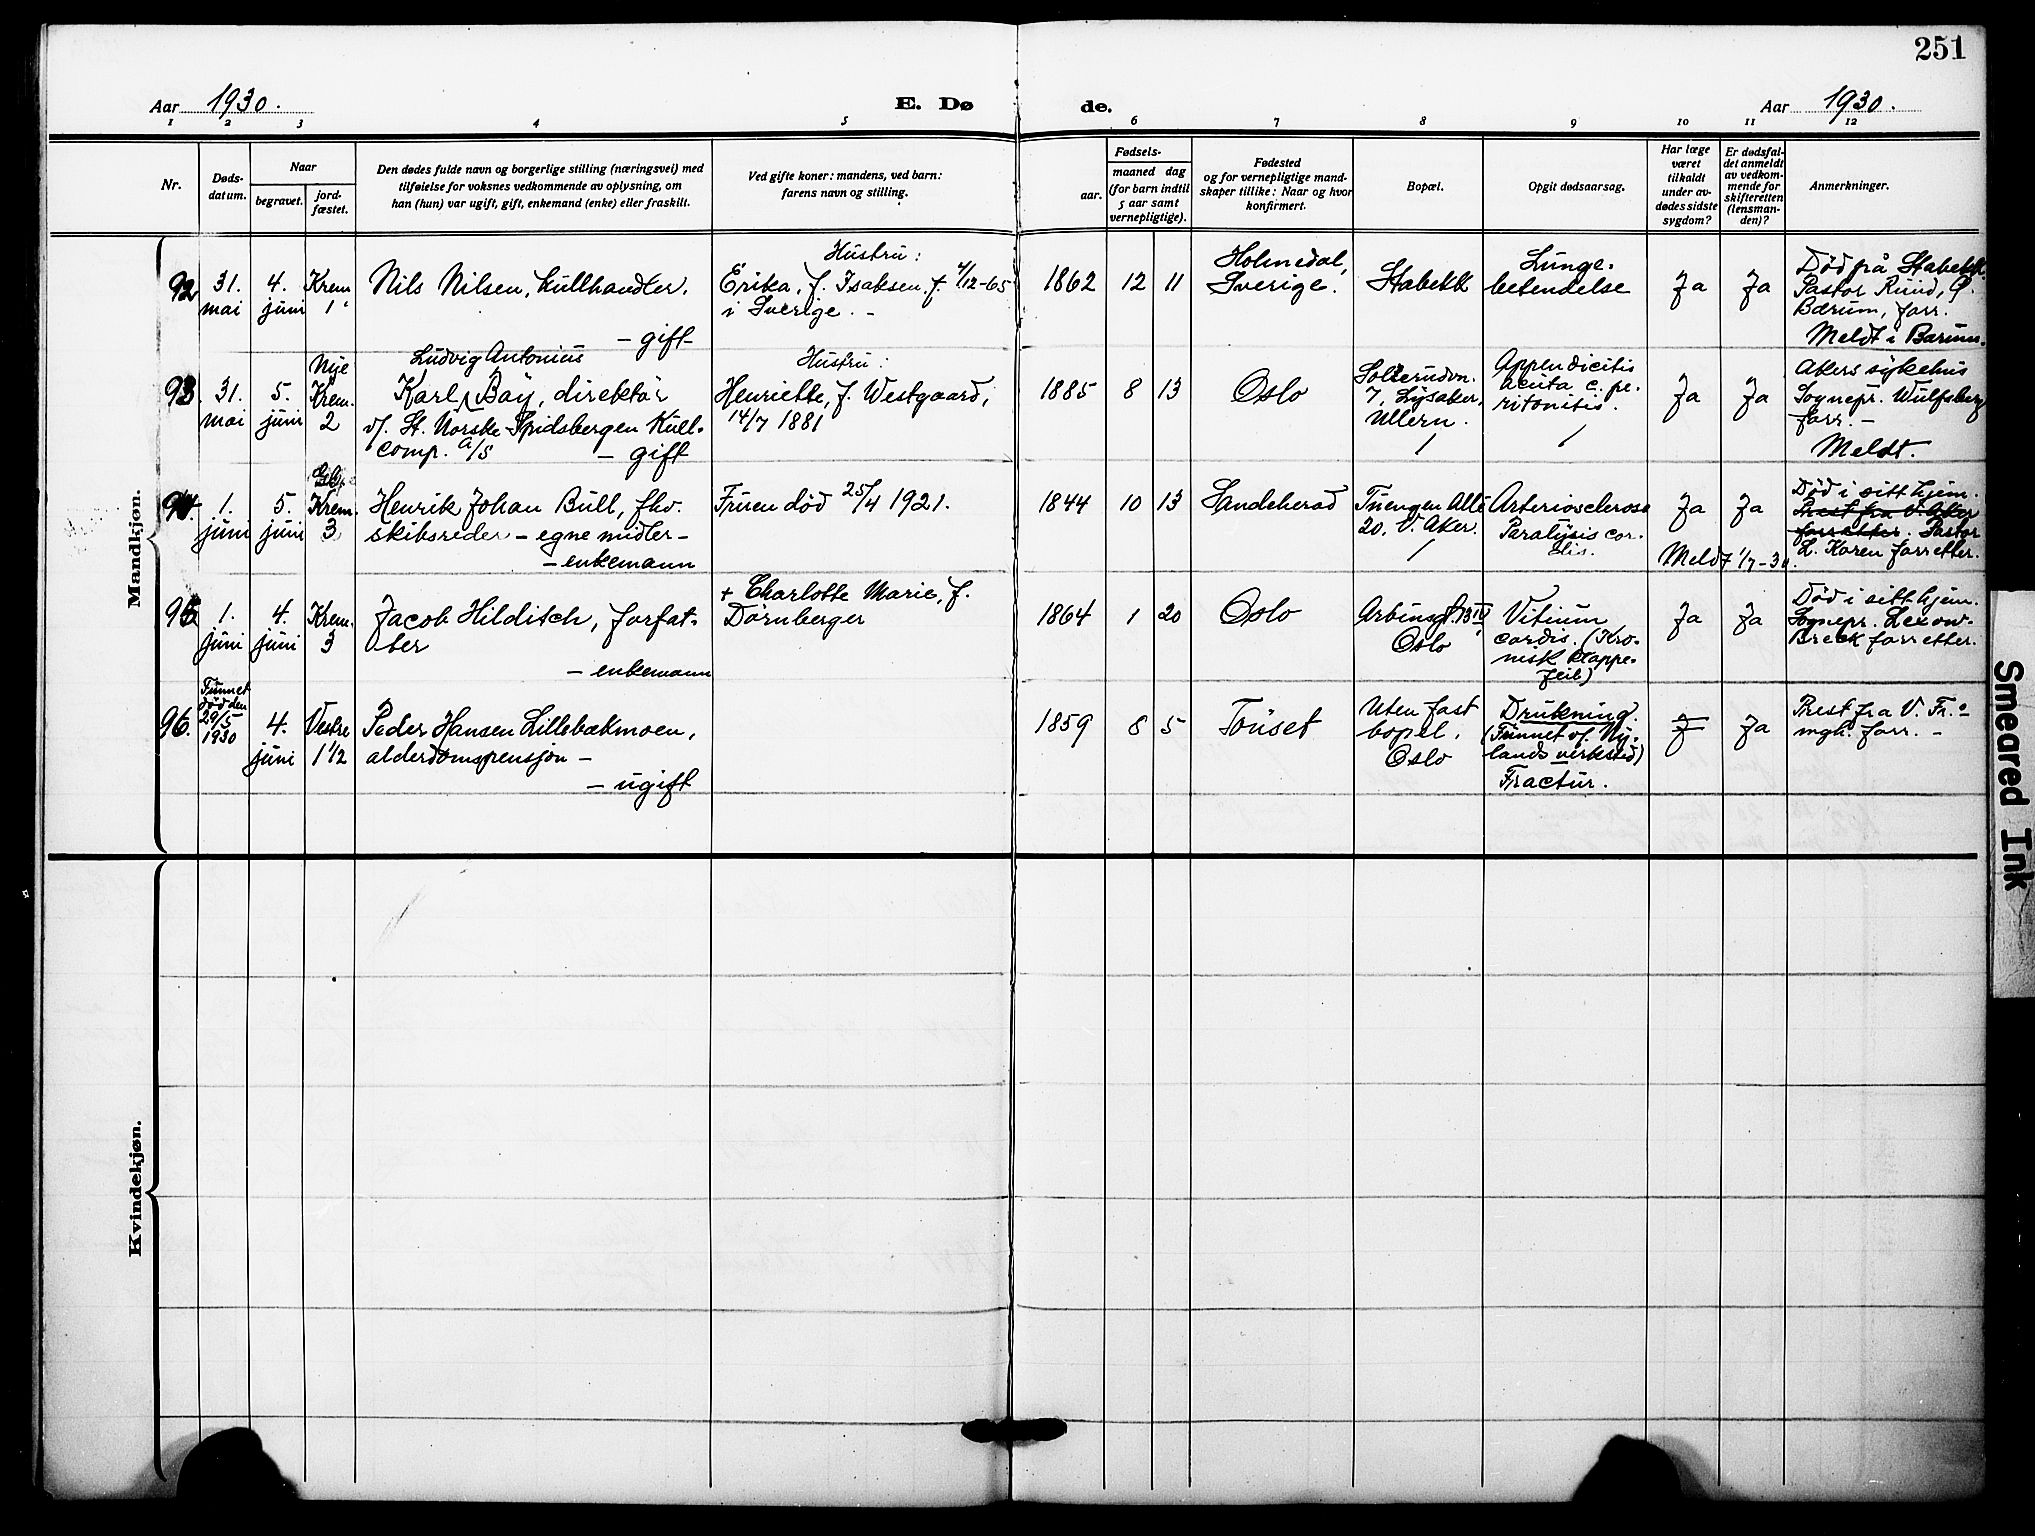 251
Aar 1930.
E. Dø
de.
Aar 1930.
1 2 3 4 5 6 7 8 9 10 11 12
Nr.
Døds-
datum.
Naar
begravet.
jord-
fæstet.
Den dødes fulde navn og borgerlige stilling (næringsvei) med
tilføielse for voksnes vedkommende av oplysning, om
han (hun) var ugift, gift, enkemand (enke) eller fraskilt.
Ved gifte koner: mandens, ved barn:
farens navn og stilling.
Fødsels-
aar.
maaned dag
(for barn indtil
5 aar samt
vernepligtige).
Fødested
og for vernepligtige mand-
skaper tillike: Naar og hvor
konfirmert.
Bopæl.
Opgit dødsaarsag.
Har læge
været
tilkaldt
under av-
dødes sidste
sygdom?
Er dødsfal-
det anmeldt
av vedkom-
mende for
skifteretten
(lensman-
den)?
Anmerkninger.
Mandkjøn.
92
31.
mai
4.
juni
Krem
1
Nils Nilsen, kullhandler.
- gift
Hustru:
Erika, f. Isaksen, f. 4/12-65
i Sverige. -
1862
12
11
Holmedal,
Sverige.
Stabekk
Lunge-
betendelse
Ja
Ja
Død på Stabekk.
Pastor Ruud,
Bærum, forr.
Meldt i Bærum.
93.
31.
mai
5.
juni
Nye
Krem.
2
Ludvig Antonius
Karl Bay, direktør
v/. St. Norske Spidsbergen Kull-
comp. A/S - gift
Hustru:
Henriette, f. Westgaard,
14/7 1881
1885
8
13
Oslo
Sollerudvn.
7, Lysaker,
Ullern.
Appendicitis
acuta c. pe-
ritonitis.
Ja
Ja
Akers sykehus
Sognepr. Wulfsberg
forr. -
Meldt.
94.
1.
juni
5.
juni
Krem.
3
Henrik Johan Bull, fhv.
skibsreder - egne midler -
- enkemann
Fruen død 25/4 1921.
1844
10
13
Sandeherad
Tuengen Allé
20. V. Aker.
Arteriosclerose
Paralysis cor-
dis.
Ja
Ja
Meldt 1/7-30.
Død i sitt hjem.
Prest fra V. Aker
forretter. Pastor
L. Koren forretter.
95
1.
juni
4.
juni
Krem.
3
Jacob Hilditch, forfat-
ter
- enkemann
+ Charlotte Marie, f.
Dørnberger
1864
1
20
Oslo
Arbinsgt. 13 IV
Oslo
Vitium
cordis. (Kro-
nisk klappe-
feil)
Ja
Ja
Død i sitt hjem.
Sognepr. Lexow-
Breck forretter.
96.
Funnet
død den
29/5
1930
4.
juni
Vestre
1 1/2
Peder Hansen Lillebækmoen,
alderdomspensjon -
- ugift
1859
8
5
Tønset
Uten fast
bopel.
Oslo
Drukning.
(Funnet v/. Ny-
lands verksted)
Fractur.
Ja
Prest fra V. Fr.-
mgh. forr. -
Kvindekjøn.
Smeared Ink